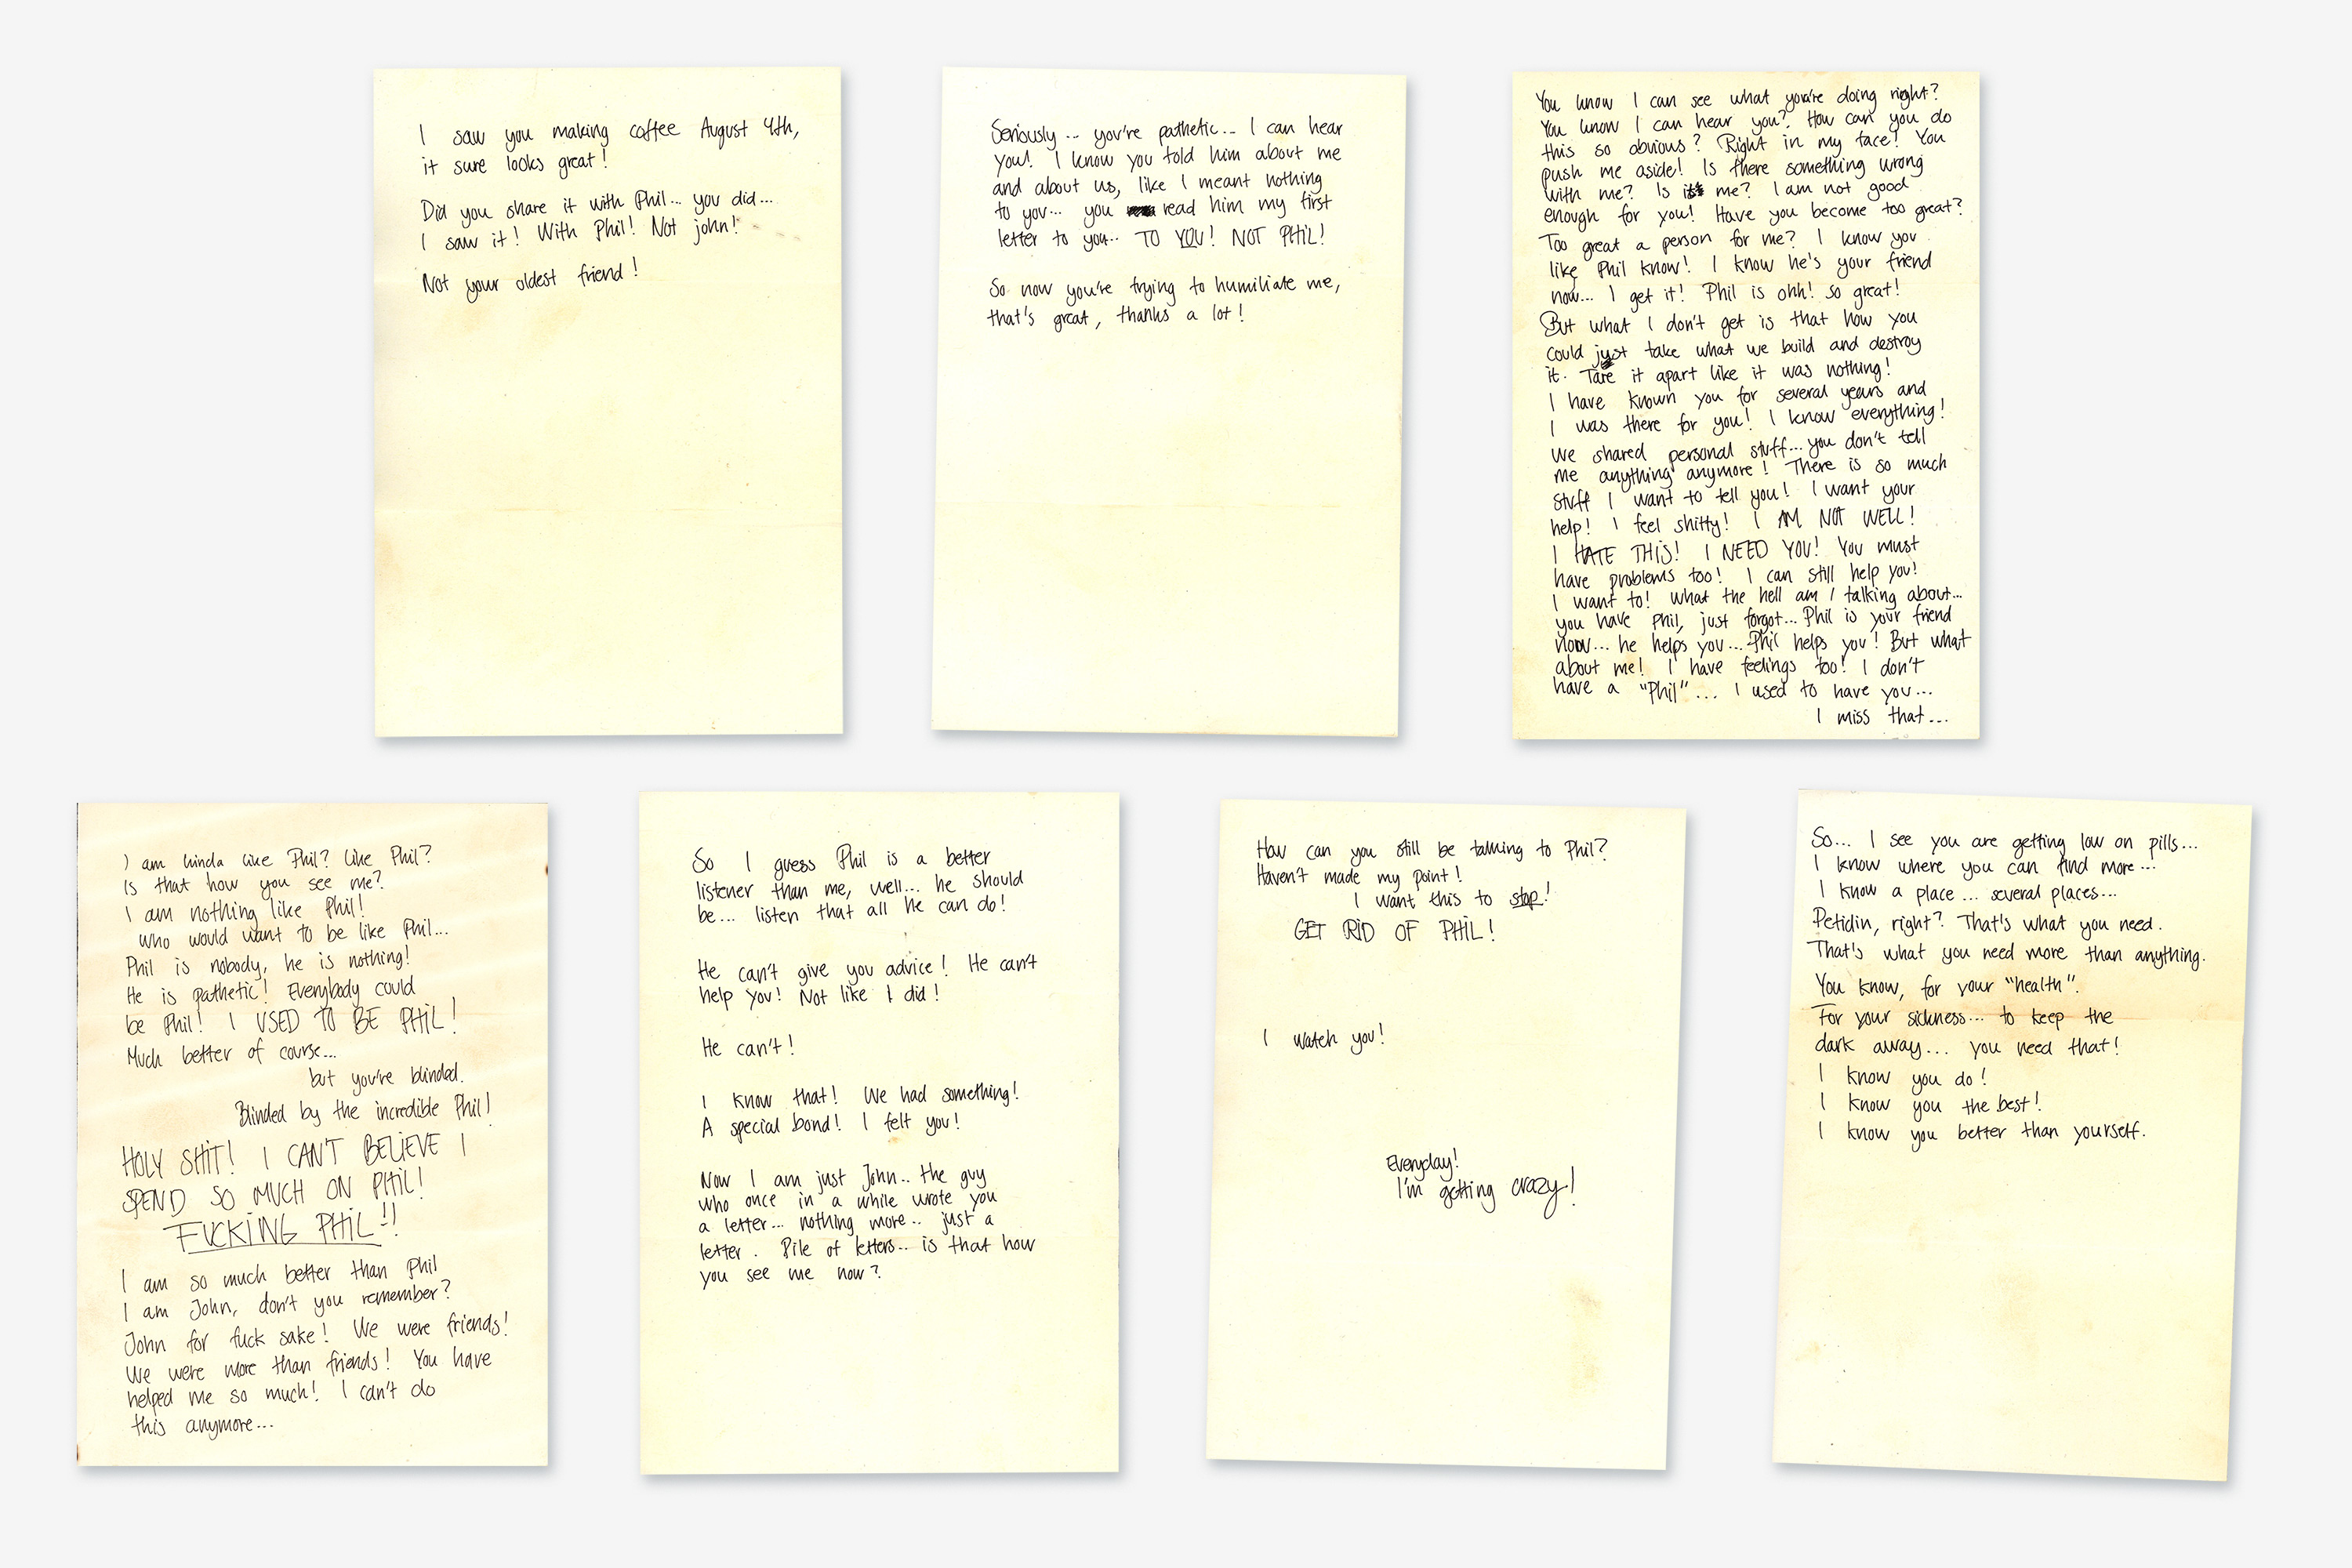 I saw you making coffee August 4th,
it sure looks great!
Did you share it with Phil... you did...
I saw it! With Phil! Not john!
Not your oldest friend!
Seriously... you're pathetic... I can hear
you! I know you told him about me
and about us, like I meant nothing
to you... you read him my first
letter to you.. TO YOU! NOT PHIL!
So now you're trying to humiliate me,
that's great, thanks a lot!
You know I can see what you're doing right?
You know I can hear you? How can you do
this so obvious? Right in my face! You
push me aside! Is there something wrong
with me? Is it me? I am not good
enough for you! Have you become too great?
Too great a person for me? I know you
like Phil know! I know he's your friend
now... I get it! Phil is ohh! so great!
But what I don't get is that how you
could just take what we build and destroy
it. Tare it apart like it was nothing!
I have known you for several years and
I was there for you! I know everything!
We shared personal stuff... you don't tell
me anything anymore! There is so much
stuff I want to tell you! I want your
help! I feel shitty! I AM NOT WELL!
I HATE THIS! I NEED YOU! You must
have problems too! I can still help you!
I want to! what the hell am I talking about...
you have Phil, just forgot... Phil is your friend
now... he helps you... Phil helps you! But what
about me! I have feelings too! I don't
have a "Phil"... I used to have you...
I miss that...
I am kinda like Phil? Like Phil?
Is that how you see me?
I am nothing like Phil!
who would want to be like Phil...
Phil is nobody, he is nothing!
He is pathetic! Everybody could
be Phil! I USED TO BE PHIL!
Much better of course...
but you're blinded.
Blinded by the incredible Phil!
HOLY SHIT! I CAN'T BELIEVE I
SPEND SO MUCH ON PHIL!
FUCKING PHIL!!
I am so much better than Phil
I am John, don't you remember?
John for fuck sake! We were friends!
We were more than friends! You have
helped me so much! I can't do
this anymore...
So I guess Phil is a better
listener than me, well... he should
be... listen that all he can do!
He can't give you advice! He can't
help you! Not like I did!
He can't!
I know that! We had something!
A special bond! I felt you!
Now I am just John.. the guy
who once in a while wrote you
a letter... nothing more.. just a
letter. Pile of letters.. is that how
you see me now?
How can you still be talking to Phil?
Haven't made my point!
I want this to stop!
GET RID OF PHIL!
I watch you!
Everyday!
I'm getting crazy!
So... I see you are getting low on pills...
I know where you can find more...
I know a place... several places...
Petidin, right? That's what you need.
That's what you need more than anything.
You know, for your "health".
For your sickness... to keep the
dark away... you need that!
I know you do!
I know you the best!
I know you better than yourself.